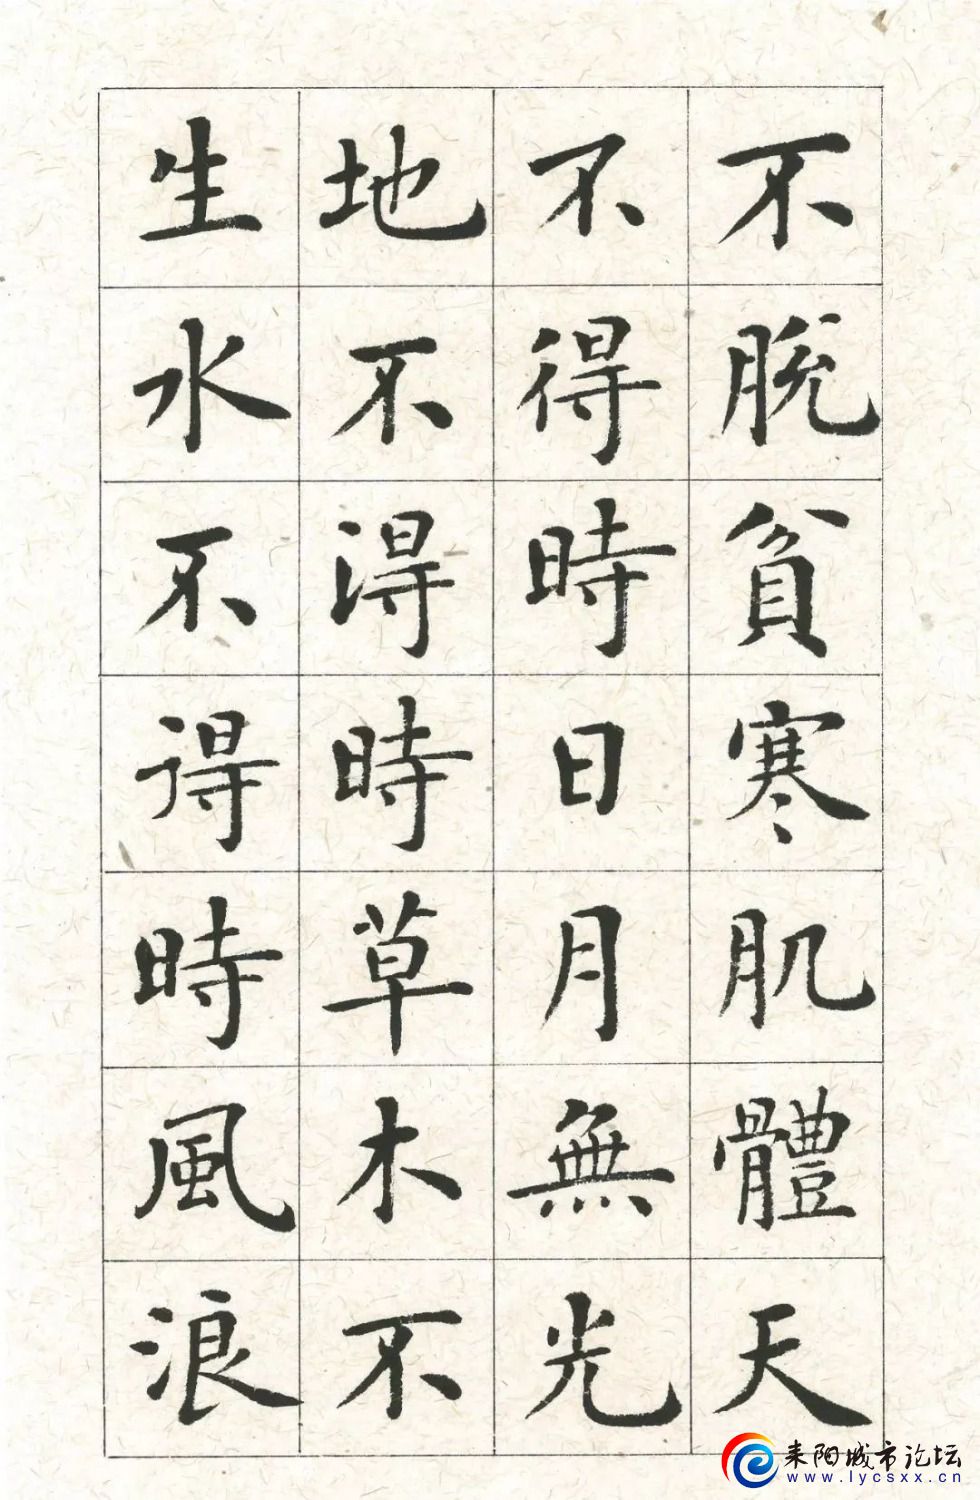 不脫貧寒肌體天
不得時日月無光
地不得時草木不
生水不得時風浪
耒阳城市论坛
www.lycsxx.cn